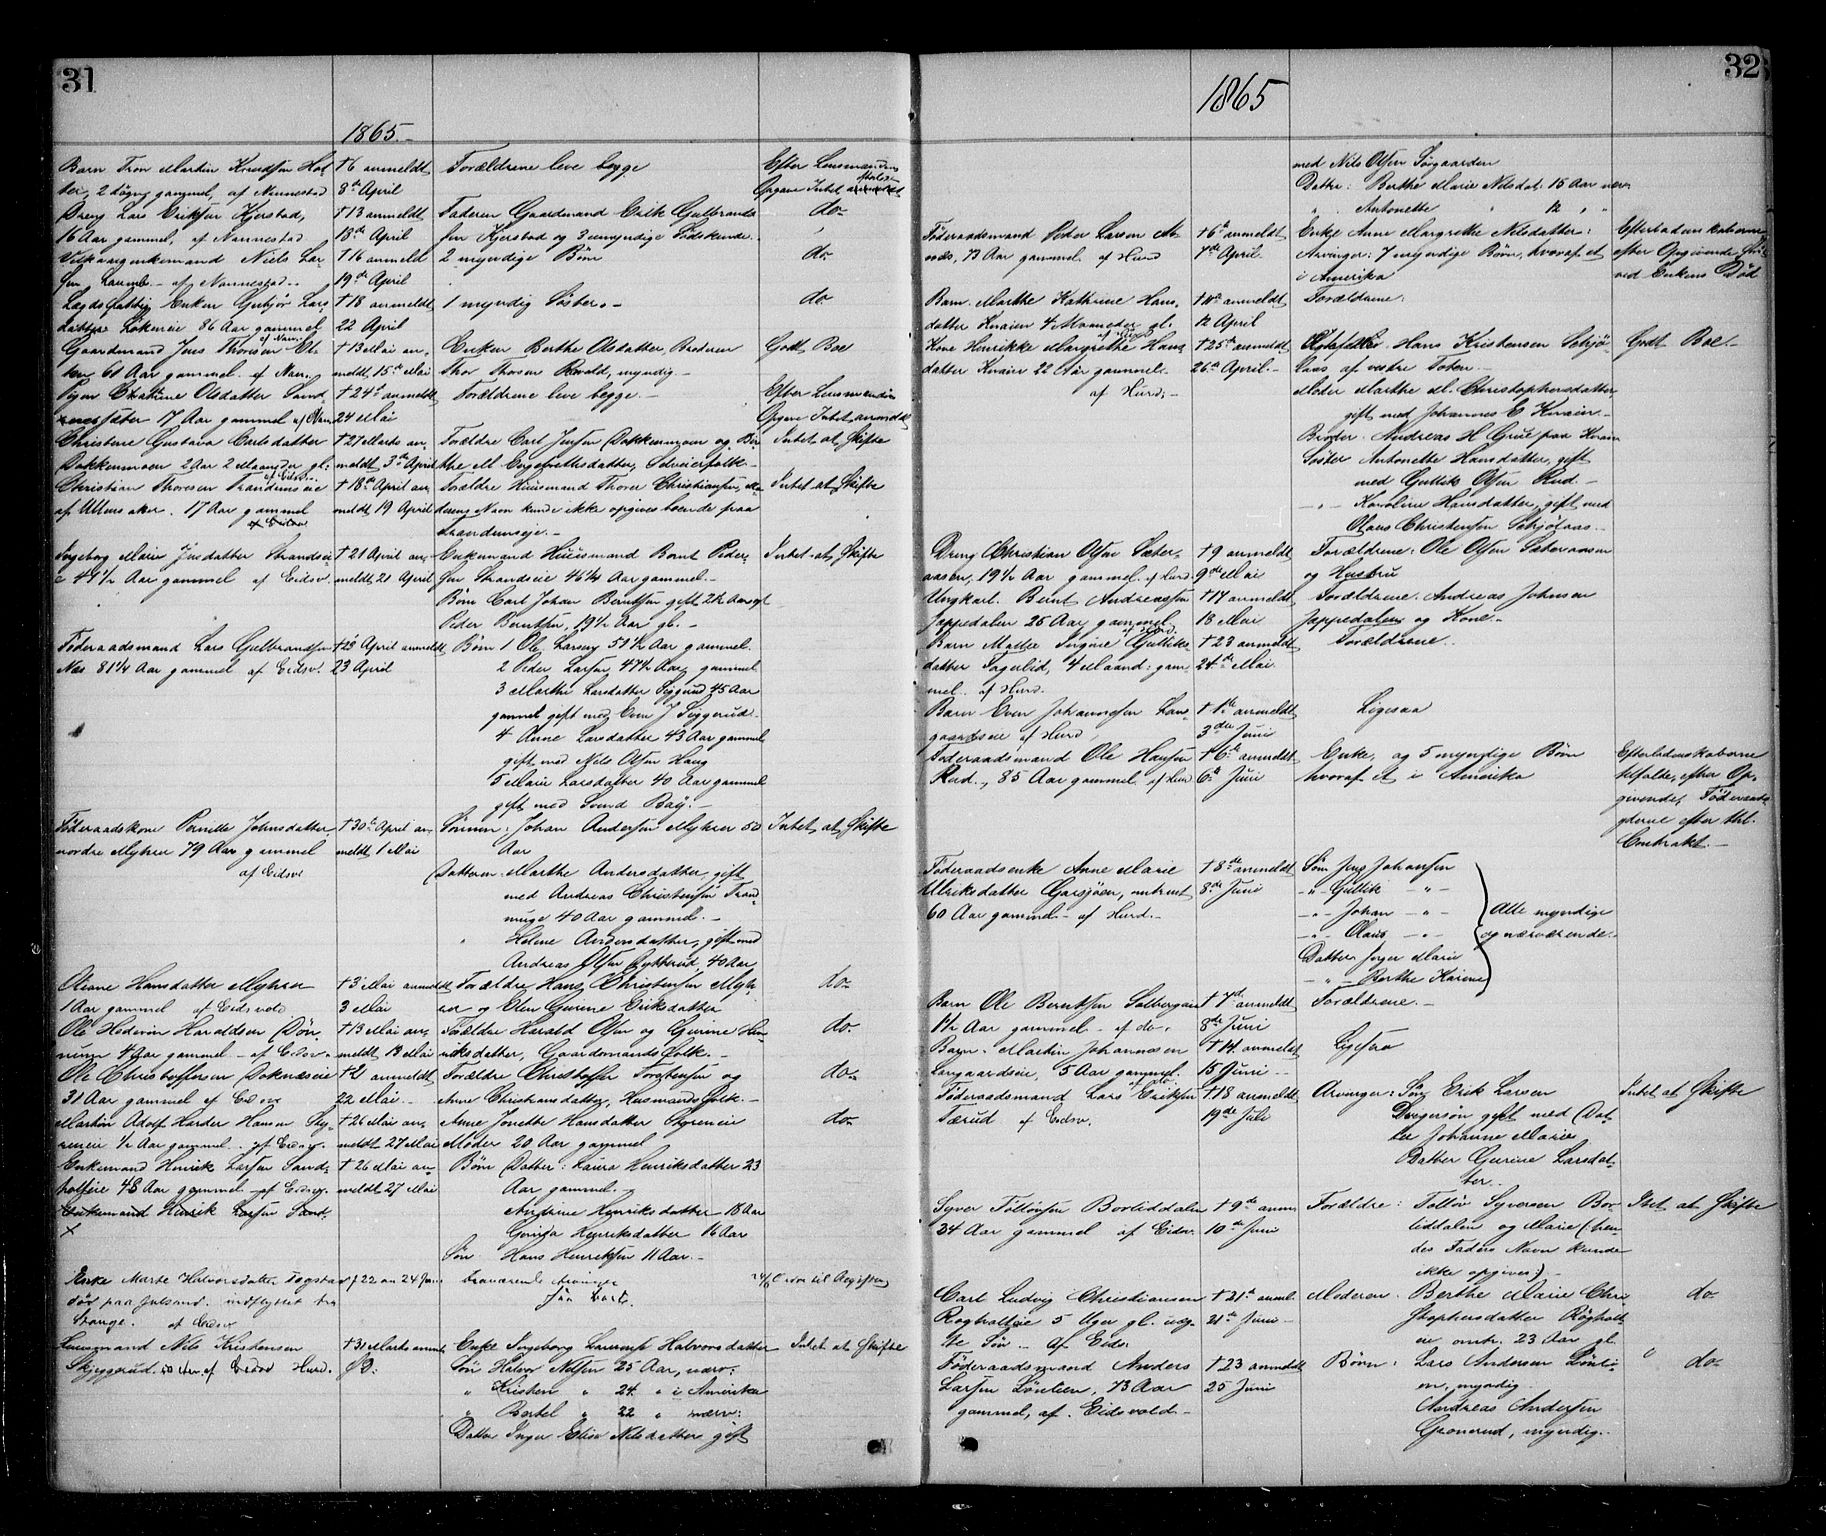 31
1865.-
Barn Tron Martin Knudsen Hol
ter, 2 døgn gammel, af Nannestad
†6 anmeldt
8de April
Forældrene leve begge
Efter Lensmandens
Opgave Intet
Dreng Lars Eriksen Kjerstad,
16 Aar gammel, af Nannestad
†13 anmeldt
18de April
Faderen Gaardmand Erik Gulbrand
sen Kjerstad og 3 umyndige Sødskende.
do-
Niels Lar-
sen - af Nannestad
†16 anmeldt
19de April
2 myndige Børn
do-
Enken Lars
datter Løkeneie 86 Aar gammel
af Nan.
†18 anmeldt
22 April
1 myndig Søster.-
do
Gaardmand Jens Thoresen
61 Aar gammel af Nan.
†13 Mai an-
meldt 15de Mai
Enken Berthe Olsdatter, Broderen
Thor Thorsen myndig-
Godt Boe
Pigen Olsdatter Sand-
17 Aar gammel af Nan
†24de anmeldt
24 Mai
Forældrene leve begge.-
Efter Lensmandens
Opgave Intet anmeldt
Christine Gustava Carlsdatter
Dokkenmoen 2 Aar 2 Maaneder gl.
af Eidsv.
†27 Marts an-
meldt 3de April
Forældre Carl Jensen Dokkenmoen og Ber
the M Engebrethsdatter, Selveierfolk.-
Intet at Skifte
Christian Thoresen Trandemseie
af Ullensaker. 17 Aar gammel
†18de April an-
meldt 19 April
Forældre Huusmand Thorer Christiansen, Mo
derens Navn kunde ikke opgives boende paa
Trandemseie.-
Intet at Skifte
Ingeborg Marie Jensdatter Strandsei
e 49½ Aar gammel af Eidsv.
†21 April an-
meldt 21 April
Enkemand Huusmand Bernt Peder-
sen Strandseie 46¼ Aar gammel.-
Børn Carl Johan Berntsen gift 24 Aar gl
Peder Berntsen, 19½ Aar gl.-
Intet at Skifte
Føderaadsmand Lars Gulbrandsen
Næs 81¼ Aar gammel af Eidsv.
†23 April anmeldt
23 April
Børn 1 Ole Larsen 51½ Aar gammel
2 Peder Larsen 47½ Aar gammel
3 Marthe Larsdatter Seggerud 45 Aar
gammel gift med Even J Seggerud
4 Anne Larsdatter 43 Aar gammel
gift med Nils Olsen Haug
5 Marie Larsdatter 40 Aar gammel
gift med Svend Bay.-
Føderaadskone Pernille Johnsdatter
nordre Myhrer 79 Aar gammel
af Eidsv
†30te April an-
meldt 1 Mai
Sønnen: Johan Andersen Myhrer 50
Aar
Datteren: Marthe Andersdatter, gift
med Andreas Christensen
40 Aar gammel.-
" Helene Andersdatter, gift med
Andreas Olsen 40 Aar
Intet at Skifte
Oleane Hansdatter Myhrer
1 Aar gammel af Eidsvold
†3 Mai anmeldt
3 Mai
Forældre Hans Christensen Myh-
rer og Olea Gurine Eriksdatter
do-
Ole Hedevin Haraldsen Døn-
num 4 Aar gammel - af Eidsv.
†13 Mai an-
meldt 13 Mai
Forældre Harald Olsen og Gurine Hen-
riksdatter, Gaardmandsfolk.-
do-
Ole Christoffersen Doknæseie
31 Aar gammel af Eidsv
†21 anmeldt
22 Mai.-
Forældre Christoffer Torstensen og
Anne Christiansdatter, Husmandsfolk.-
do-
Martin Adolf Harder Hansen Sty-
reneie ½ Aar gammel - af Eidsv.
†26 Mai an-
meldt 27 Mai
Anne Jonette Hansdatter Styreneie
Moder 20 Aar gammel
do-
Enkemand Henrik Larsen Sand-
holteie 48 Aar gammel - af Eidsv.
†26 Mai an-
meldt 27 Mai
Børn Datter: Laura Henriksdatter 23
Aar gammel.-
Andrine Henriksdatter 18 Aar
Henriksdatter 16 Aar
Søn Hans Henriksen 11 Aar.-
Enkemand Henrik Larsen Sand-
Enke Marte Halvorsdatter
død paa Julsand. indflyttet fra
Stange. af Eidsv
†22 an 24 Juni
fraværende Arvinger
Lensmand Nils Kristensen
Skjeggerud af Eidsv Hurd.
†31 Marts anm.
Enke Ingeborg Halvorsdatter
Søn Halvor Nilsen 25 Aar, nærv:
" Kristen " 24 " i Amerika
" Bertel " 22 " nærv:
Datter Inger Elise Nilsdatter gift
Intet at Skifte
32
1865
med Nils Olsen Torgaarden
Datter: Berthe Marie Nilsdat: 15 Aar nærv
" Antonette " 12 " "
Føderaadsmand Peder Larsen
73 Aar gammel af Hurd
†6te anmeldt
7de April
Enke Anne Margrethe Nilsdatter:
Arvinger: 7 myndige Børn, hvoraf et
i Amerika
Efterladenskaberne
efter Opgivende
ved Enkens Død
Barn Marthe Kathrine Hans-
datter Knaien 4 Maaneder gl.
af Hurd
anmeldt
12 April
Forældrene:
Kone Henrikke Margrethe Hans-
datter Knaien 22 Aar gammel
af Hurd.-
†25de anmeldt
26de April.-
Hans Kristensen Schjø-
laas af vestre Toten.-
Moder Marthe M. Christophersdatter,
gift med Johannes C Knaien.-
Broder Andreas H Grue paa Knaien
Søster Antonette Hansdatter, gift
med Gullik Olsen Rud-
-"- Karoline Hansdatter, gift med
Olaus Christensen Schjølaas.-
Godt Boe.-
Dreng Christian Olsen Sæter-
aasen, 19½ Aar gammel af Hurd
†9 anmeldt
9de Mai
Forældrene: Ole Olsen Sæteraasen
og Hustru
Ungkarl Bernt Andreassen
Jappedalen 25 Aar gammel
af Hurd
†17 anmeldt
18 Mai
Forældrene Andreas Johnsen
Jappedalen og Kone.-
Barn Mathe Ingine Gulliks-
datter Fagerlid, 4 Maand: gam-
mel af Hurd.
†23 anmeldt
24de Mai
Forældrene.
Barn Even Johannesen Lan-
gaardseie af Hurd
†1ste anmeldt
3die Juni
Ligesaa
Føderaadsmand Ole Hansen
Rud, 85 Aar gammel af Hurd
†6te anmeldt
6te Juni
Enke, og 5 myndige Børn
hvoraf et i Amerika
Efterladenskaberne
tilfalde, efter Op-
givende, Føderaads
yderne efter thl.
Contrakt.-
Føderaadsenke Anne Marie
Ulriksdatter Garsjøen, omtrent
60 Aar gammel - af Hurd.-
†8de anmeldt
8de Juni
Søn Jens Johansen
-"- Gullik -"-
-"- Johan -"-
-"- Olaus -"-
Datter Inger Marie
-"- Berthe Karine
Alle myndige
og nærværende.-
Barn Ole Berntsen Solbergeie
1½ Aar gammel - af do.
†7de anmeldt
8de Juni
Forældrene.-
Barn Martin Johannesen
Langaardseie, 5 Aar gammel.
af do
†14. anmeldt
15 Juni.-
Ligesaa
Føderaadsmand Lars Eriksen
Særud af Eidsv.
†18 anmeldt
19de Juli
Arvinger: Søn Erik Larsen
Svigersøn gift med Dat-
ter Johanne Marie
Datter Gurine Larsdat-
ter.-
Intet at Skifte
Syver Tolløvsen Borliddalen
24 Aar gammel af Eidsv
†9de anm.
10de Juni
Forældre: Tolløv Syversen Bor-
liddalen og Marie (hen-
des Faders Navn kunde
ikke opgives)-
Itet at Skifte
Carl Ludvig Christiansen
Røgholteie 5 Uger gl. uæg-
te Søn - af Eids
†21de anml.
21de Juni
Moderen Berthe Marie Chri
stophersdatter Røgholt
eie omtr. 23 Aar gl.
do-
Føderaadsmand Anders
Larsen Lønlien, 73 Aar
gammel, af Eidsvold-
†23 anmeldt
25 Juni
Børn: Lars Andersen Lønli-
en, myndig
Andreas Andersen
Gronerud, myndig.
do-